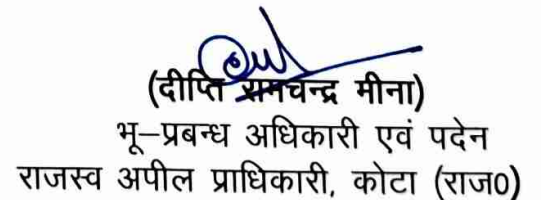 (दीप्ति रामचन्द्र मीना)
भू–प्रबन्ध अधिकारी एवं पदेन
राजस्व अपील प्राधिकारी, कोटा (राज0)